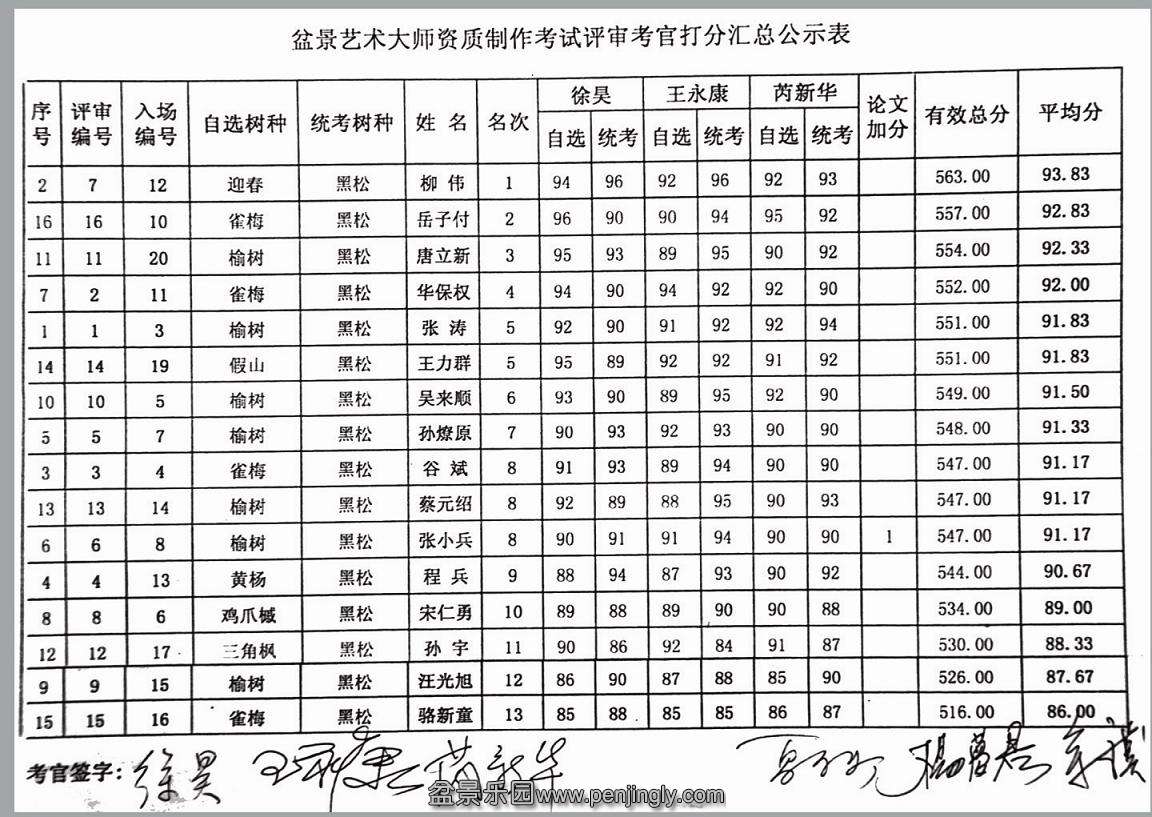 盆景艺术大师资质制作考试评审考官打分汇总公示表
序号 评审编号 入场编号 自选树种 统考树种 姓名 名次 徐昊 王永康 芮新华 论文加分 有效总分 平均分
自选 统考 自选 统考 自选 统考
2 7 12 迎春 黑松 柳伟 1 94 96 92 96 92 93 563.00 93.83
16 16 10 雀梅 黑松 岳子付 2 96 90 90 94 95 92 557.00 92.83
11 11 20 榆树 黑松 唐立新 3 95 93 89 95 90 92 554.00 92.33
7 2 11 雀梅 黑松 华保权 4 94 90 94 92 92 90 552.00 92.00
1 1 3 榆树 黑松 张涛 5 92 90 91 92 92 94 551.00 91.83
14 14 19 假山 黑松 王力群 5 95 89 92 92 91 92 551.00 91.83
10 10 5 榆树 黑松 吴来顺 6 93 90 89 95 92 90 549.00 91.50
5 5 7 榆树 黑松 孙燎原 7 90 93 92 93 90 90 548.00 91.33
3 3 4 雀梅 黑松 谷斌 8 91 93 89 94 90 90 547.00 91.17
13 13 14 榆树 黑松 蔡元绍 8 92 89 88 95 90 93 547.00 91.17
6 6 8 榆树 黑松 张小兵 8 90 91 91 94 90 90 1 547.00 91.17
4 4 13 黄杨 黑松 程兵 9 88 94 87 93 90 92 544.00 90.67
8 8 6 鸡爪槭 黑松 宋仁勇 10 89 88 89 90 90 88 534.00 89.00
12 12 17 三角枫 黑松 孙宇 11 90 86 92 84 91 87 530.00 88.33
9 9 15 榆树 黑松 汪光旭 12 86 90 87 88 85 90 526.00 87.67
15 15 16 雀梅 黑松 骆新童 13 85 88 85 85 86 87 516.00 86.00
考官签字：徐昊 王永康 芮新华
盆景乐园www.penjingly.com